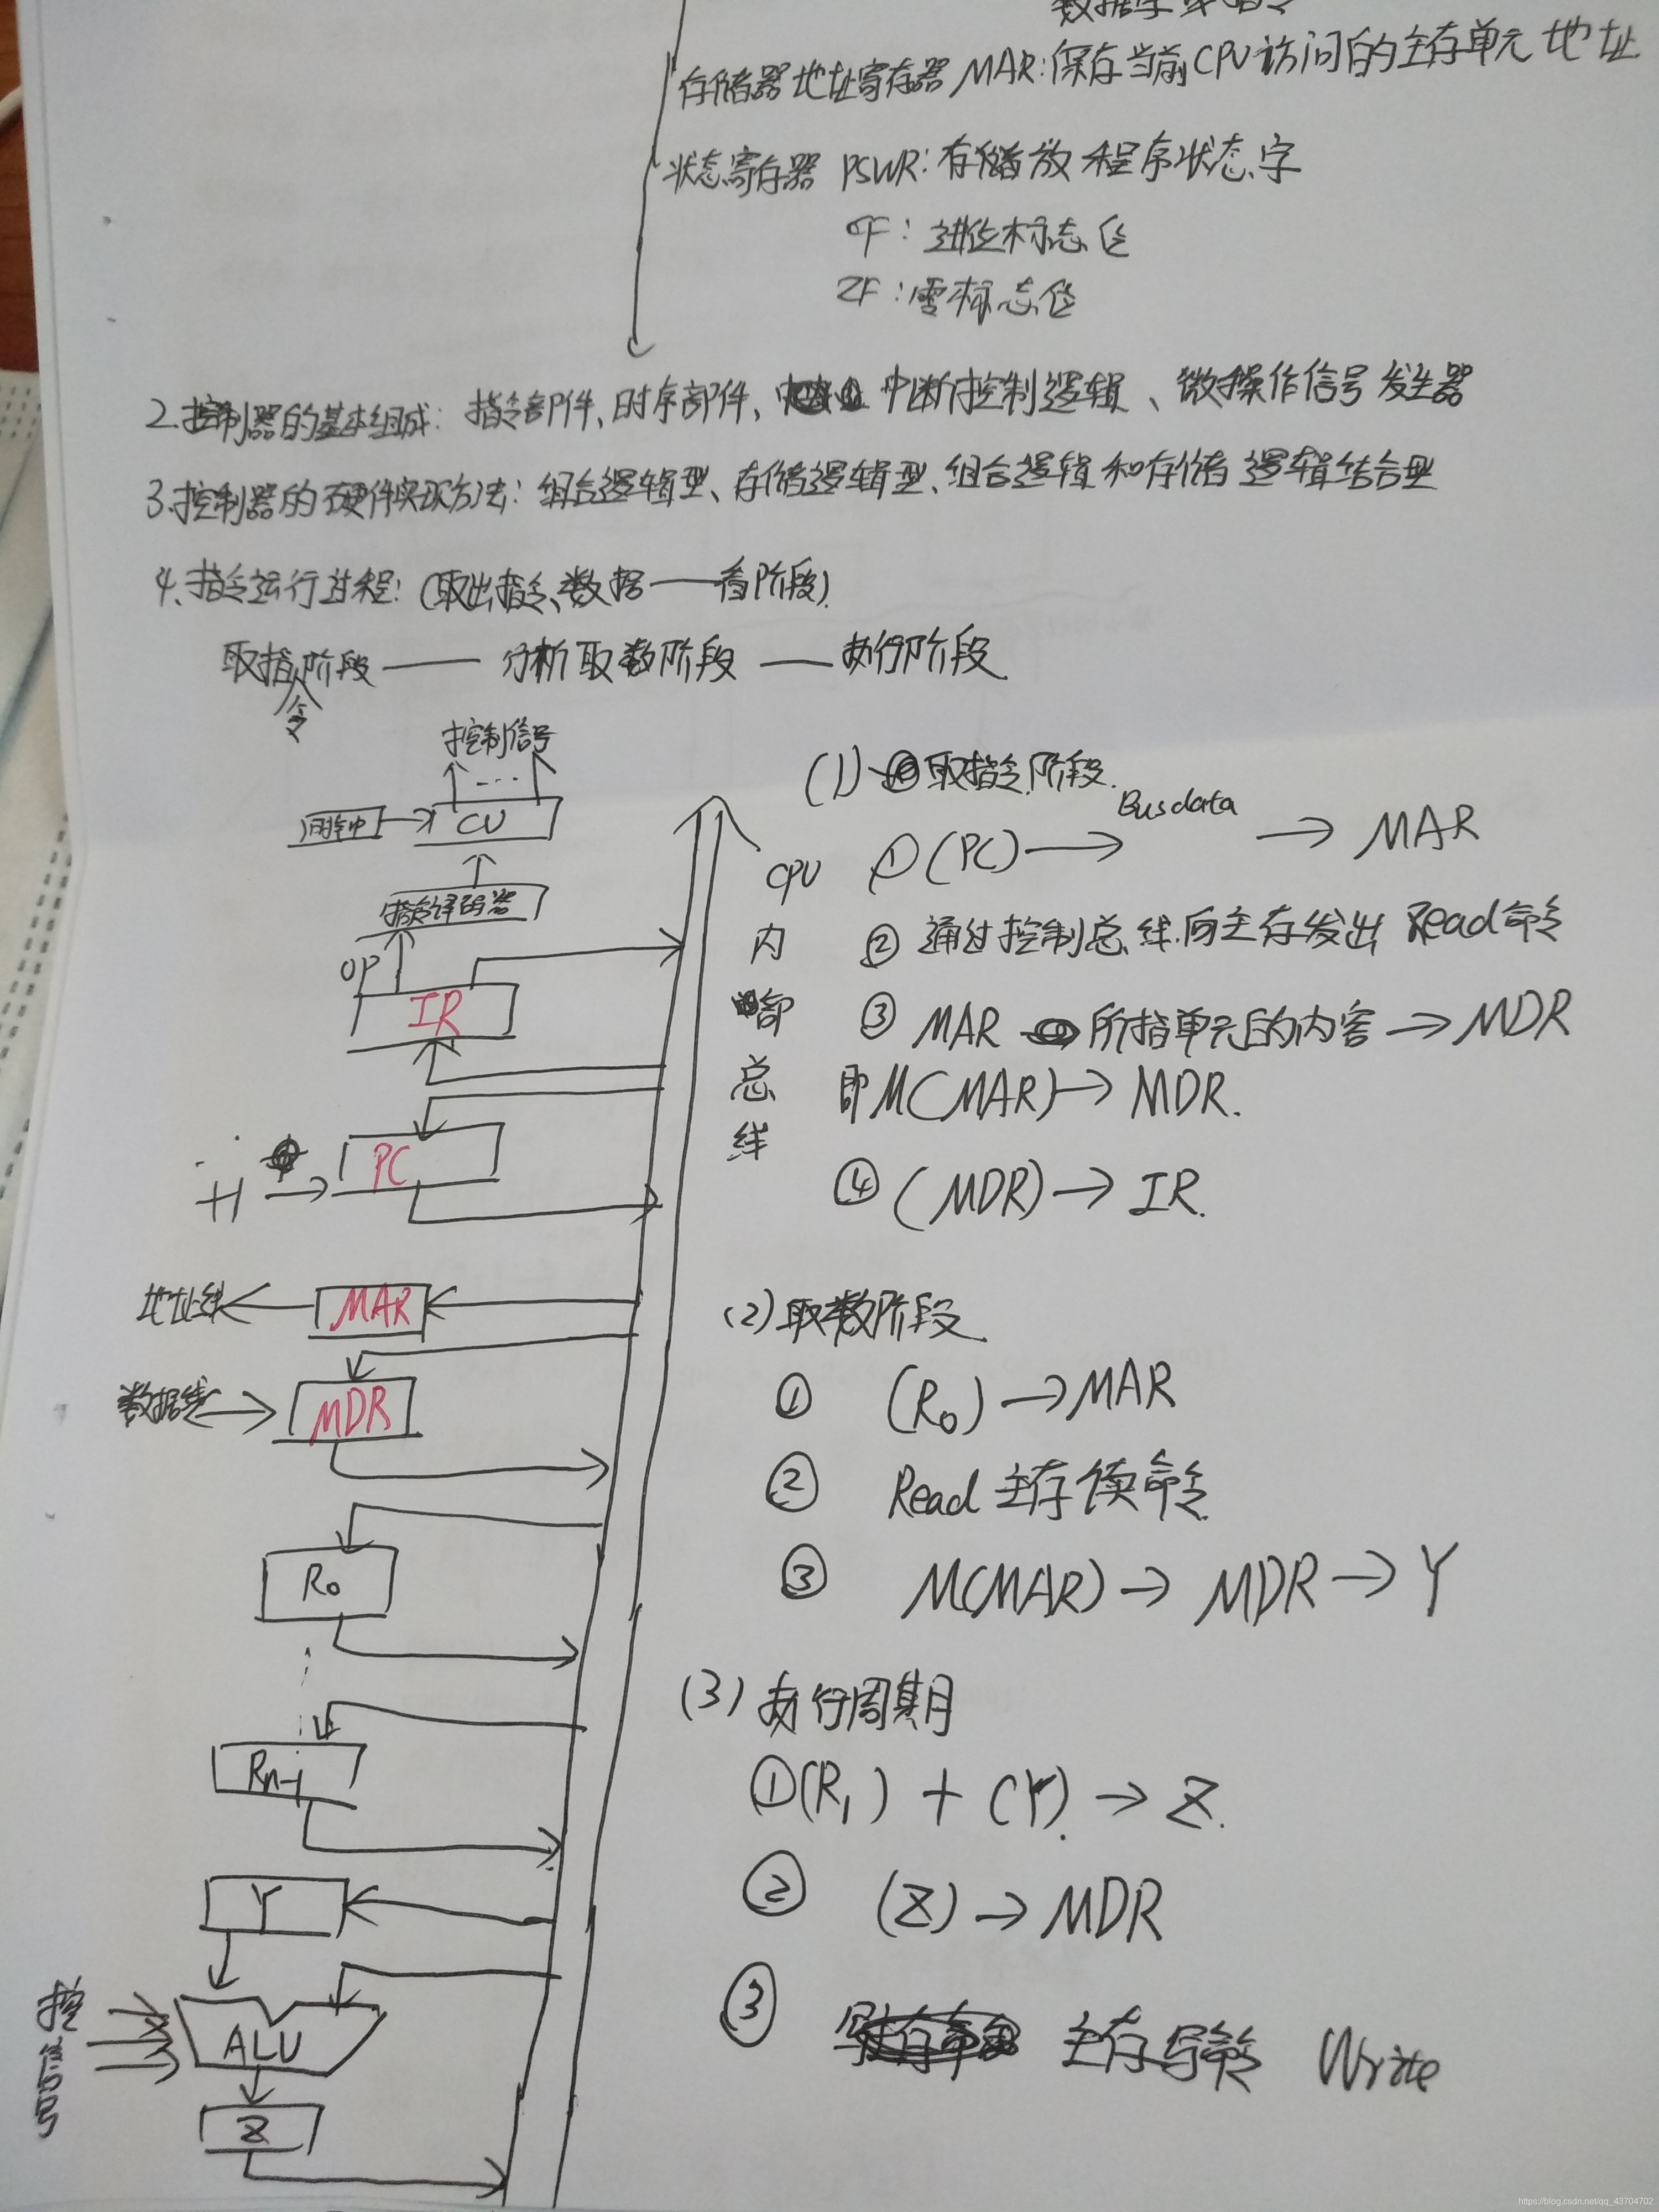 存储器地址寄存器 MAR:保存当前CPU访问的主存单元地址
状态寄存器 PSWR:存储放程序状态字
CF:进位标志位
ZF:零标志位
2.控制器的基本组成:指令部件、时序部件、中断控制逻辑、微操作信号发生器
3.控制器的硬件实现方法:组合逻辑型、存储逻辑型、组合逻辑和存储逻辑结合型
4.指令运行过程:(取出指令、数据——看阶段).
取指令阶段——分析取数阶段——执行阶段
控制信号
...
时钟
CU
指令译码器
OP
IR
+1
PC
地址线
MAR
数据线
MDR
R₀
Rn-1
Y
控
信号
ALU
Z
CPU
内
部
总
线
(1)取指令阶段.
①(PC)→ Busdata → MAR
②通过控制总线向主存发出Read命令
③MAR所指单元的内容→MDR
即M(MAR)→MDR.
④(MDR)→IR.
(2)取数阶段
① (R₀)→MAR
② Read 主存读命令
③ M(MAR)→MDR→Y
(3)执行周期
①(R₁)+(Y)→Z.
② (Z)→MDR
③ 主存写命令 Write
https://blog.csdn.net/qq_43704702